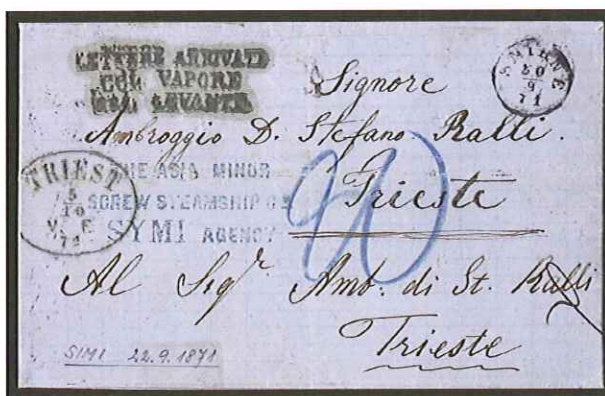 LETTERE ARRIVATE
COL VAPORE
DAL LEVANTE
SMIRNE
30
9
71
Signore
Ambroggio D. Stefano Ralli.
Trieste
TRIEST
5
10
V. E.
71
THE ASIA MINOR
SCREW STEAMSHIP Co
SYMI AGENCY
20
Al Sigr Amb. di St. Ralli
Trieste
SIMI 22.9.1871